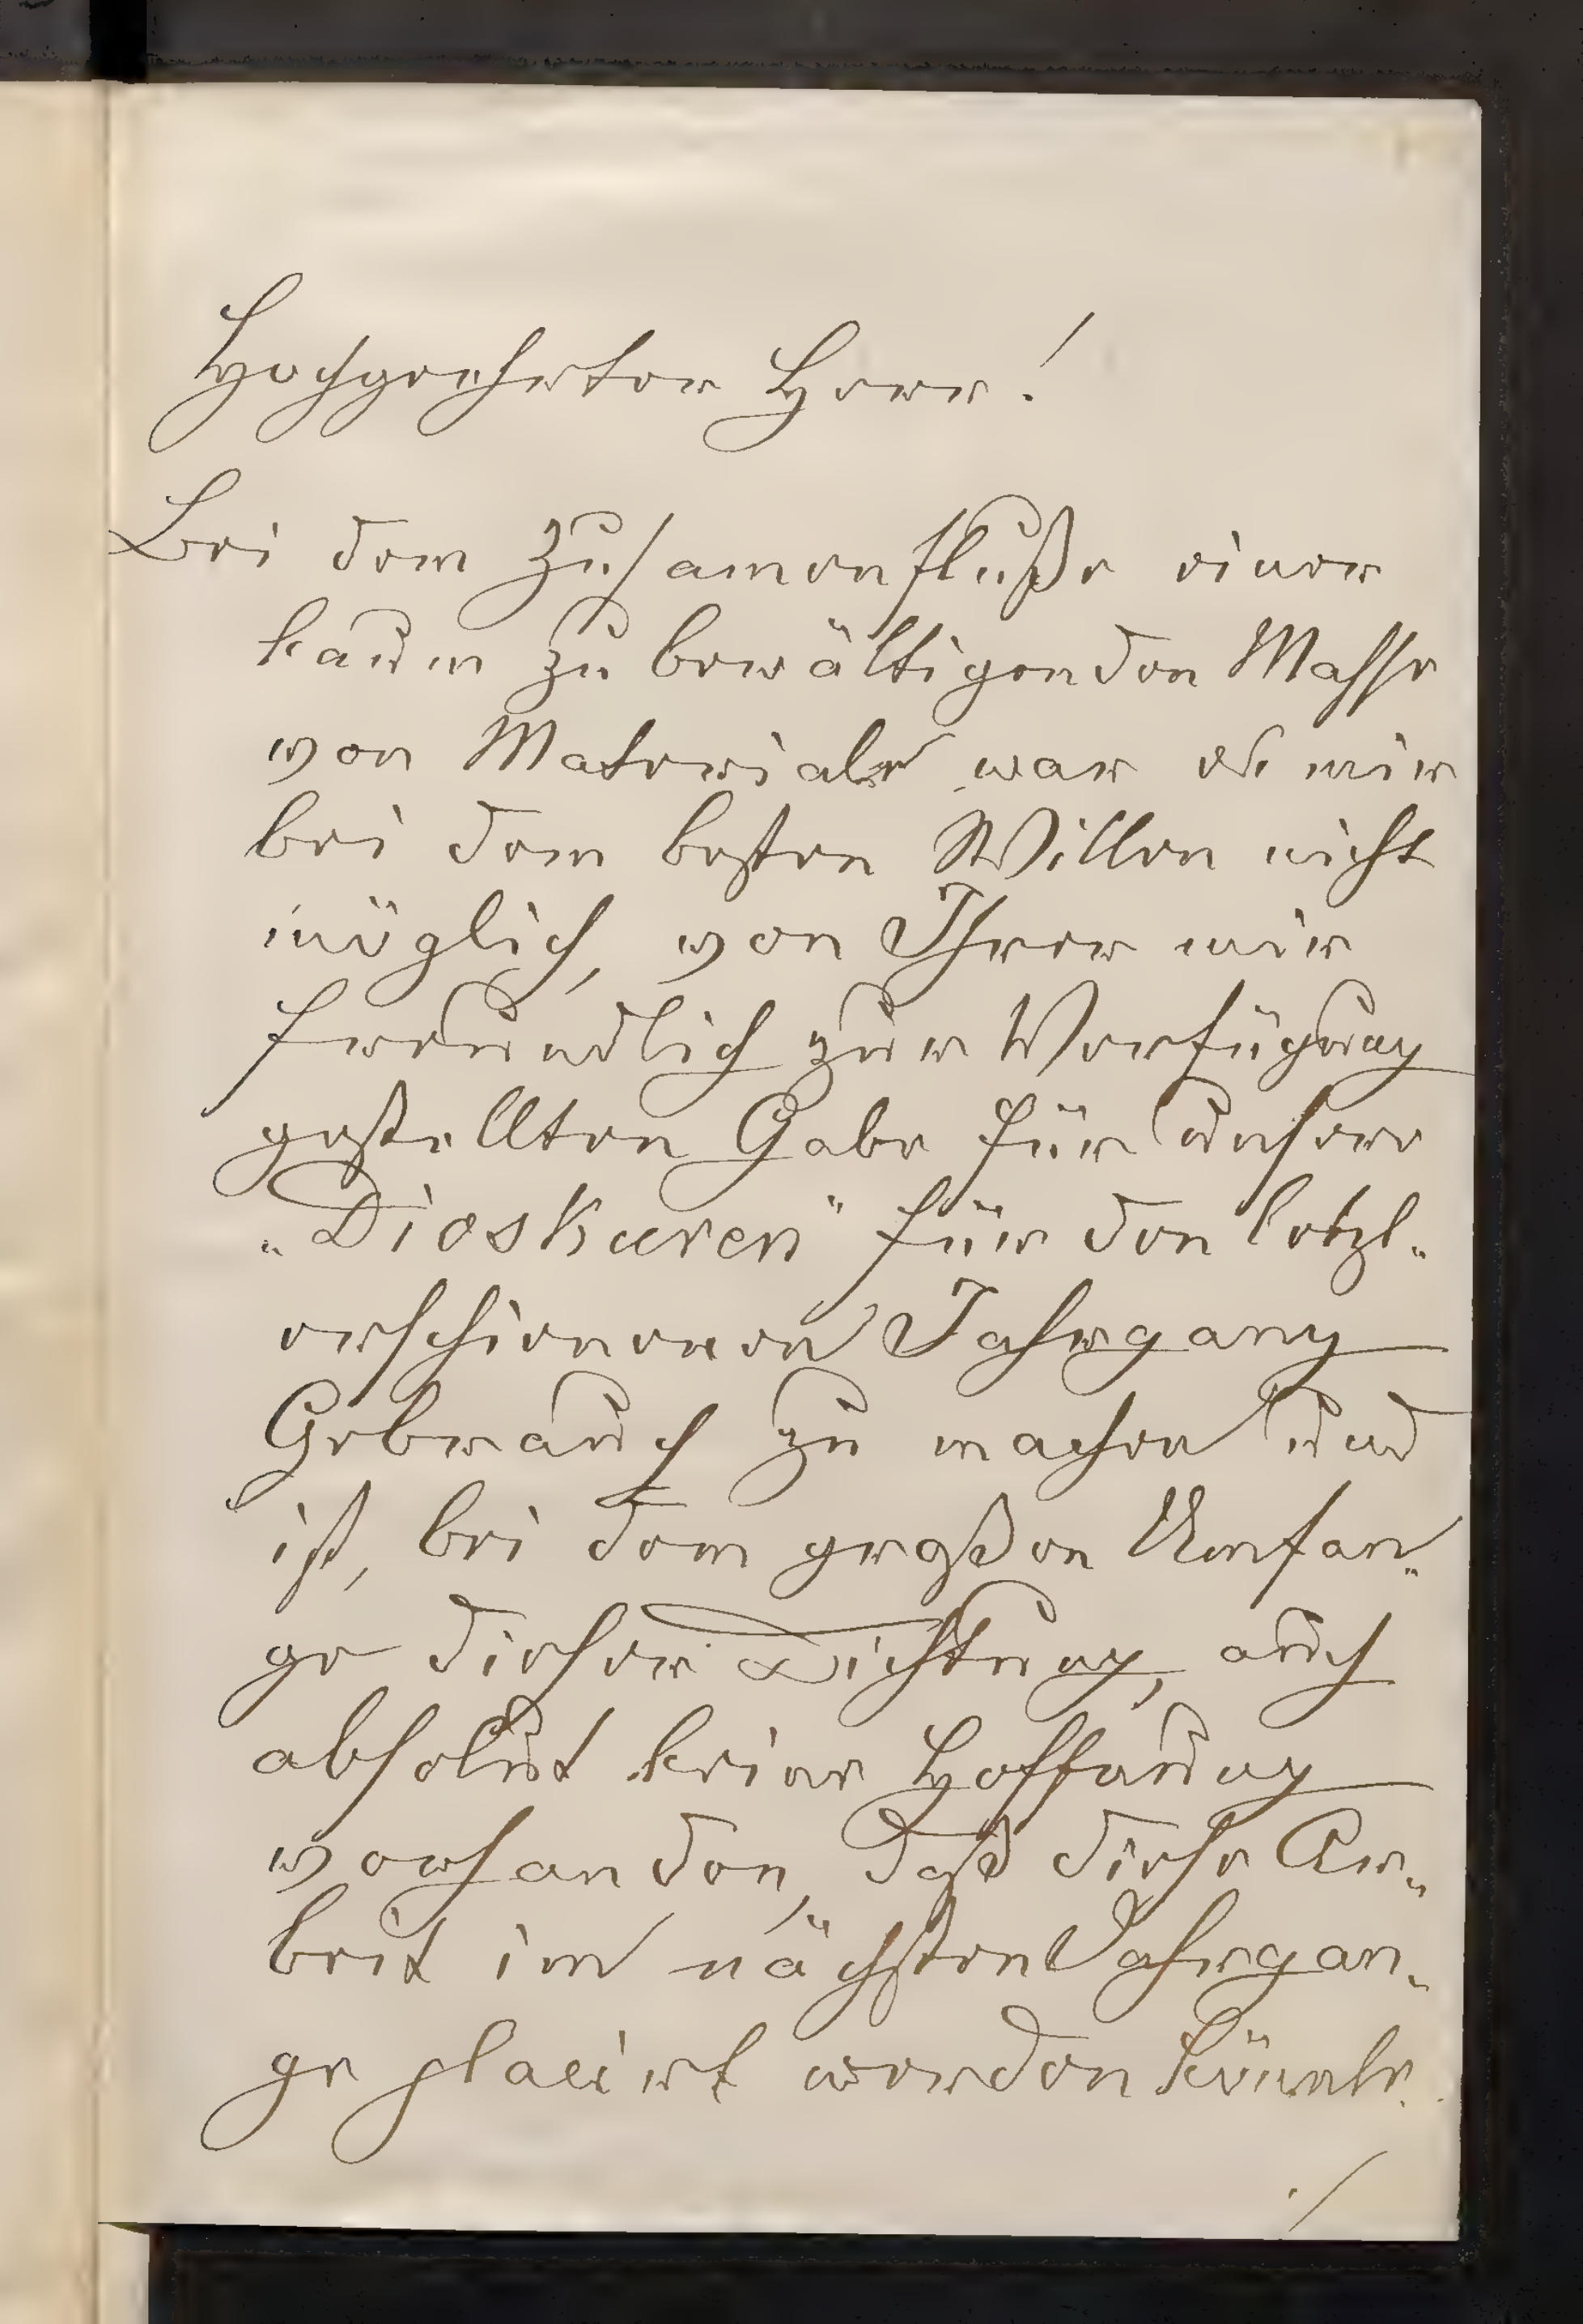 Hochgeehrter Herr!
Bei dem Zusamenfluße einer
kaum zu bewältigenden Masse
von Materiale war es mir
bei dem besten Willen nicht
möglich, von Ihrer mir
freundlich zur Verfügung
gestellten Gabe für unsere
„Dioskuren" für den letzt-
erschienenen Jahrgang
Gebrauch zu machen und
ist, bei dem großen Umfan-
ge dieser Dichtung, auch
absolut keine Hoffnung
vorhanden, daß diese Ar-
beit im nächsten Jahrgan-
ge placirt werden könnte.
./